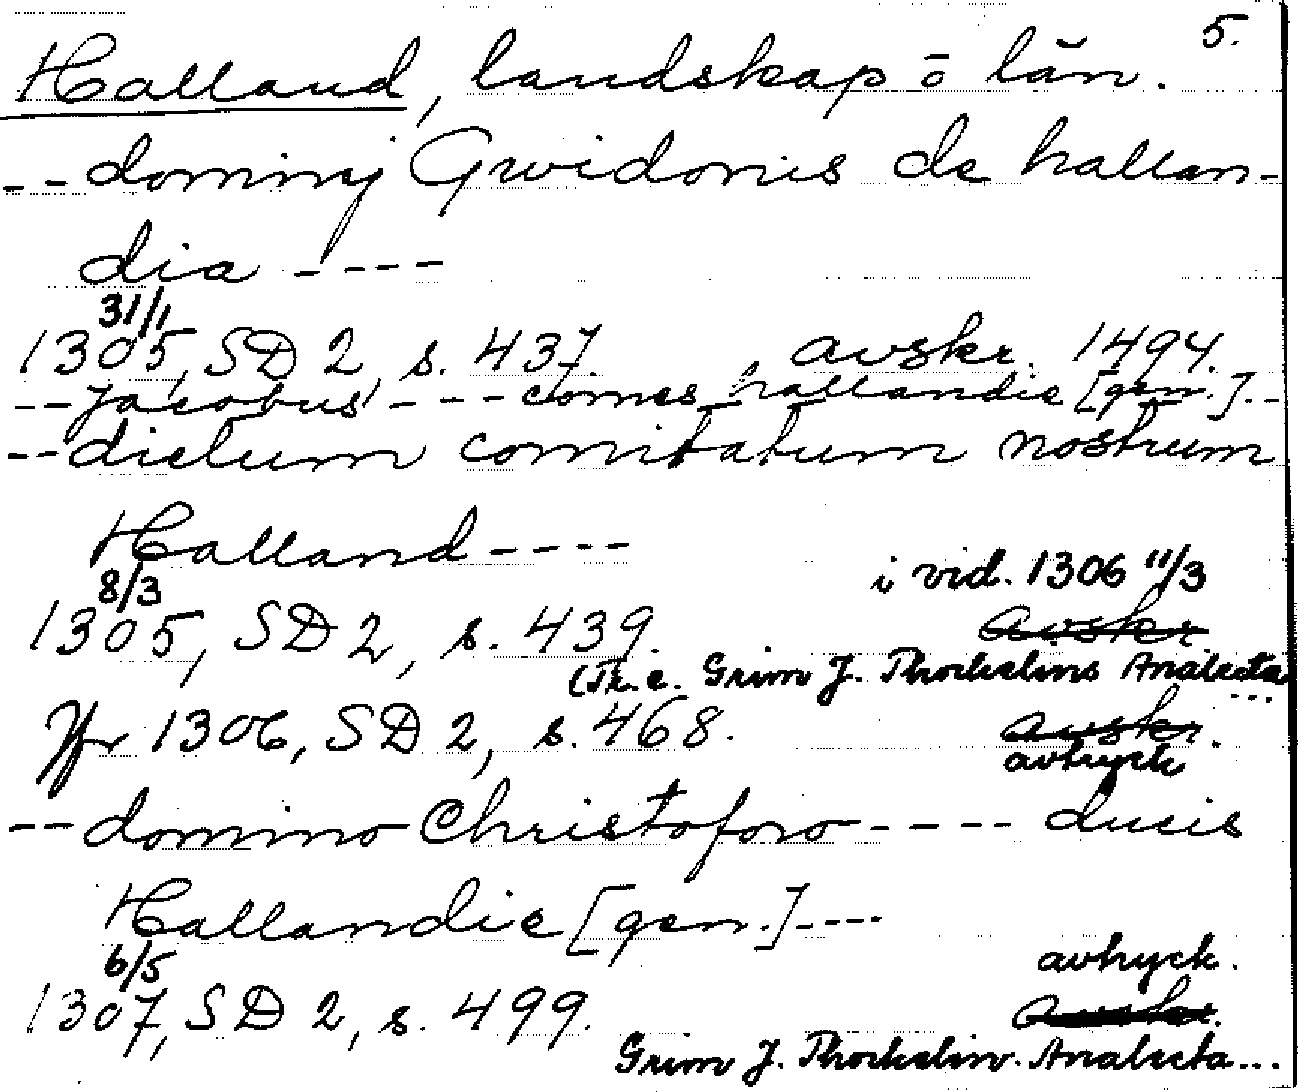 5.
Halland, landskap o län.
-- dominj Gwidonis de hallan-
dia ----
31/1
1305, SD 2, s. 437. avskr. 1494.
-- Jacobus --- comes hallandie [gen.]. --
-- dictum comitatum nostrum
Halland ----
8/3 i vid. 1306 11/3
1305, SD 2, s. 439. avskr
(Tr. e. Grim J. Thorkelins Analecta ...
Jfr 1306, SD 2, s. 468. avskr.
avtryck
-- domino Christoforo ---- ducis
Hallandie [gen.] ----
6/5 avtryck.
1307, SD 2, s. 499. avskr.
Grim J. Thorkelin. Analecta ...